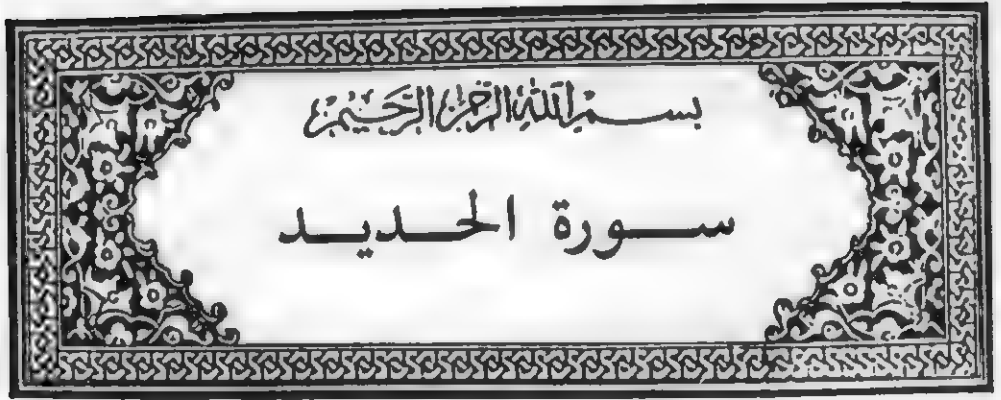 بسم الله الرحمن الرحيم
سورة الحديد